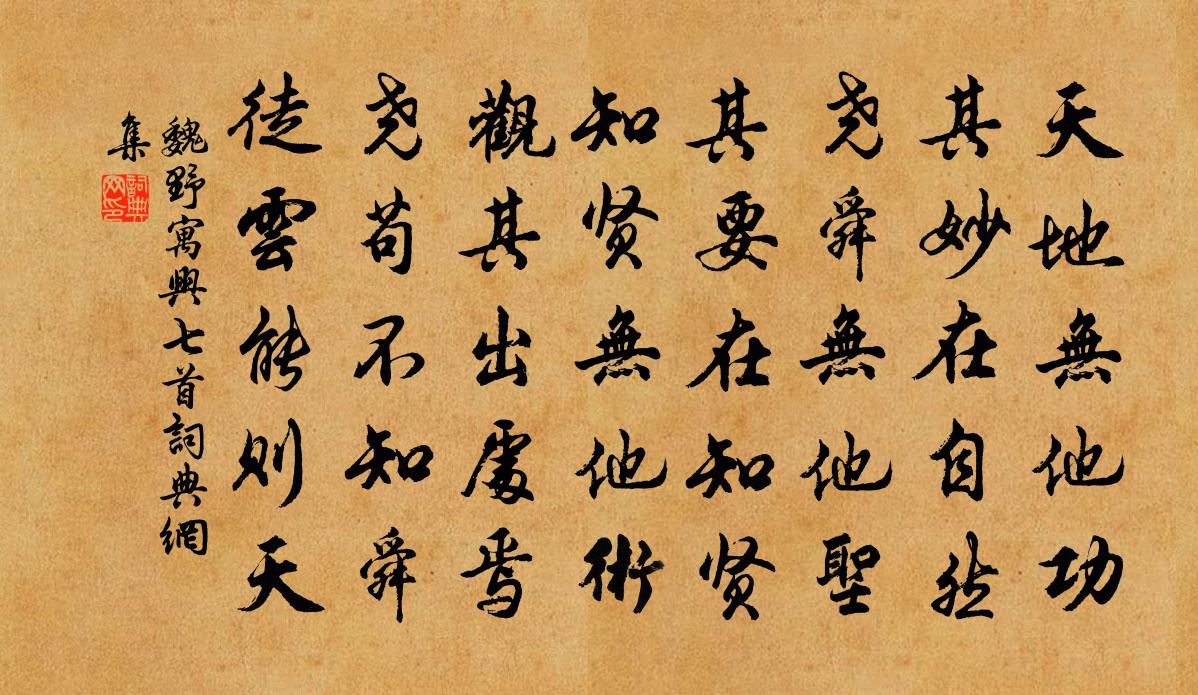 天地無他功
其妙在自然
尧舜無他聖
其要在知贤
知贤無他術
觀其出處焉
尧苟不知舜
徒雲能则天
魏野寓興七首詞典網
集
詞典
网印